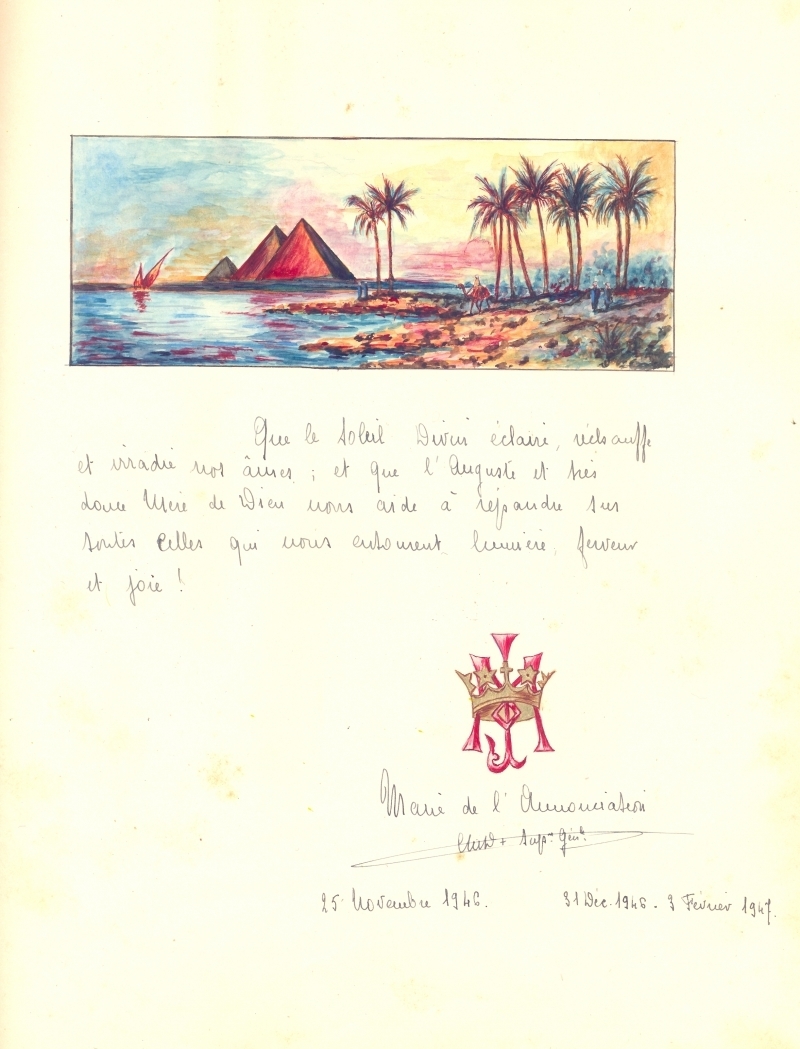 Que le Soleil Divin éclaire, réchauffe
et irradie nos âmes ; et que l'Auguste et très
douce Mère de Dieu nous aide à répandre sur
toutes celles qui nous entourent lumière, ferveur
et joie !
Marie de l'Annonciation
Supre Génle
25 Novembre 1946.
31 Déc. 1946 - 3 Février 1947.